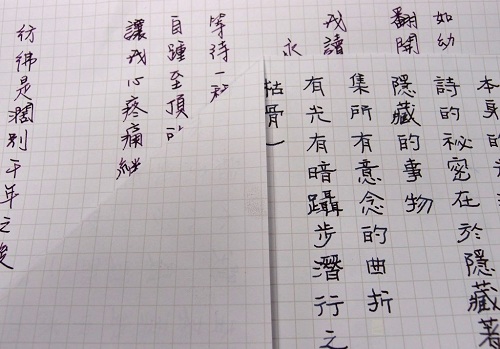 本身的
詩的秘密在於隱藏著
隱藏的事物
集所有意念的曲折
有光有暗躡步潛行之
枯骨
如幼
翻開
我讀
永
等待一
自踵至頂
讓我心疼痛
彷彿是闊別千年之後